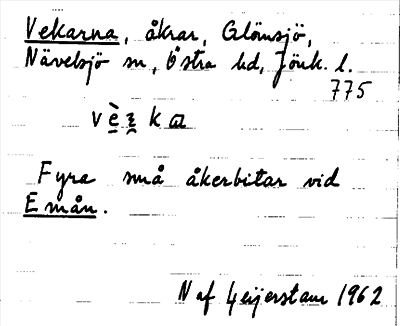 Vekarna, åkrar, Glömsjö,
Nävelsjö sn, Östra hd, Jönk. l.
775
Fyra små åkerbitar vid
Emån.
N af Geijerstam 1962